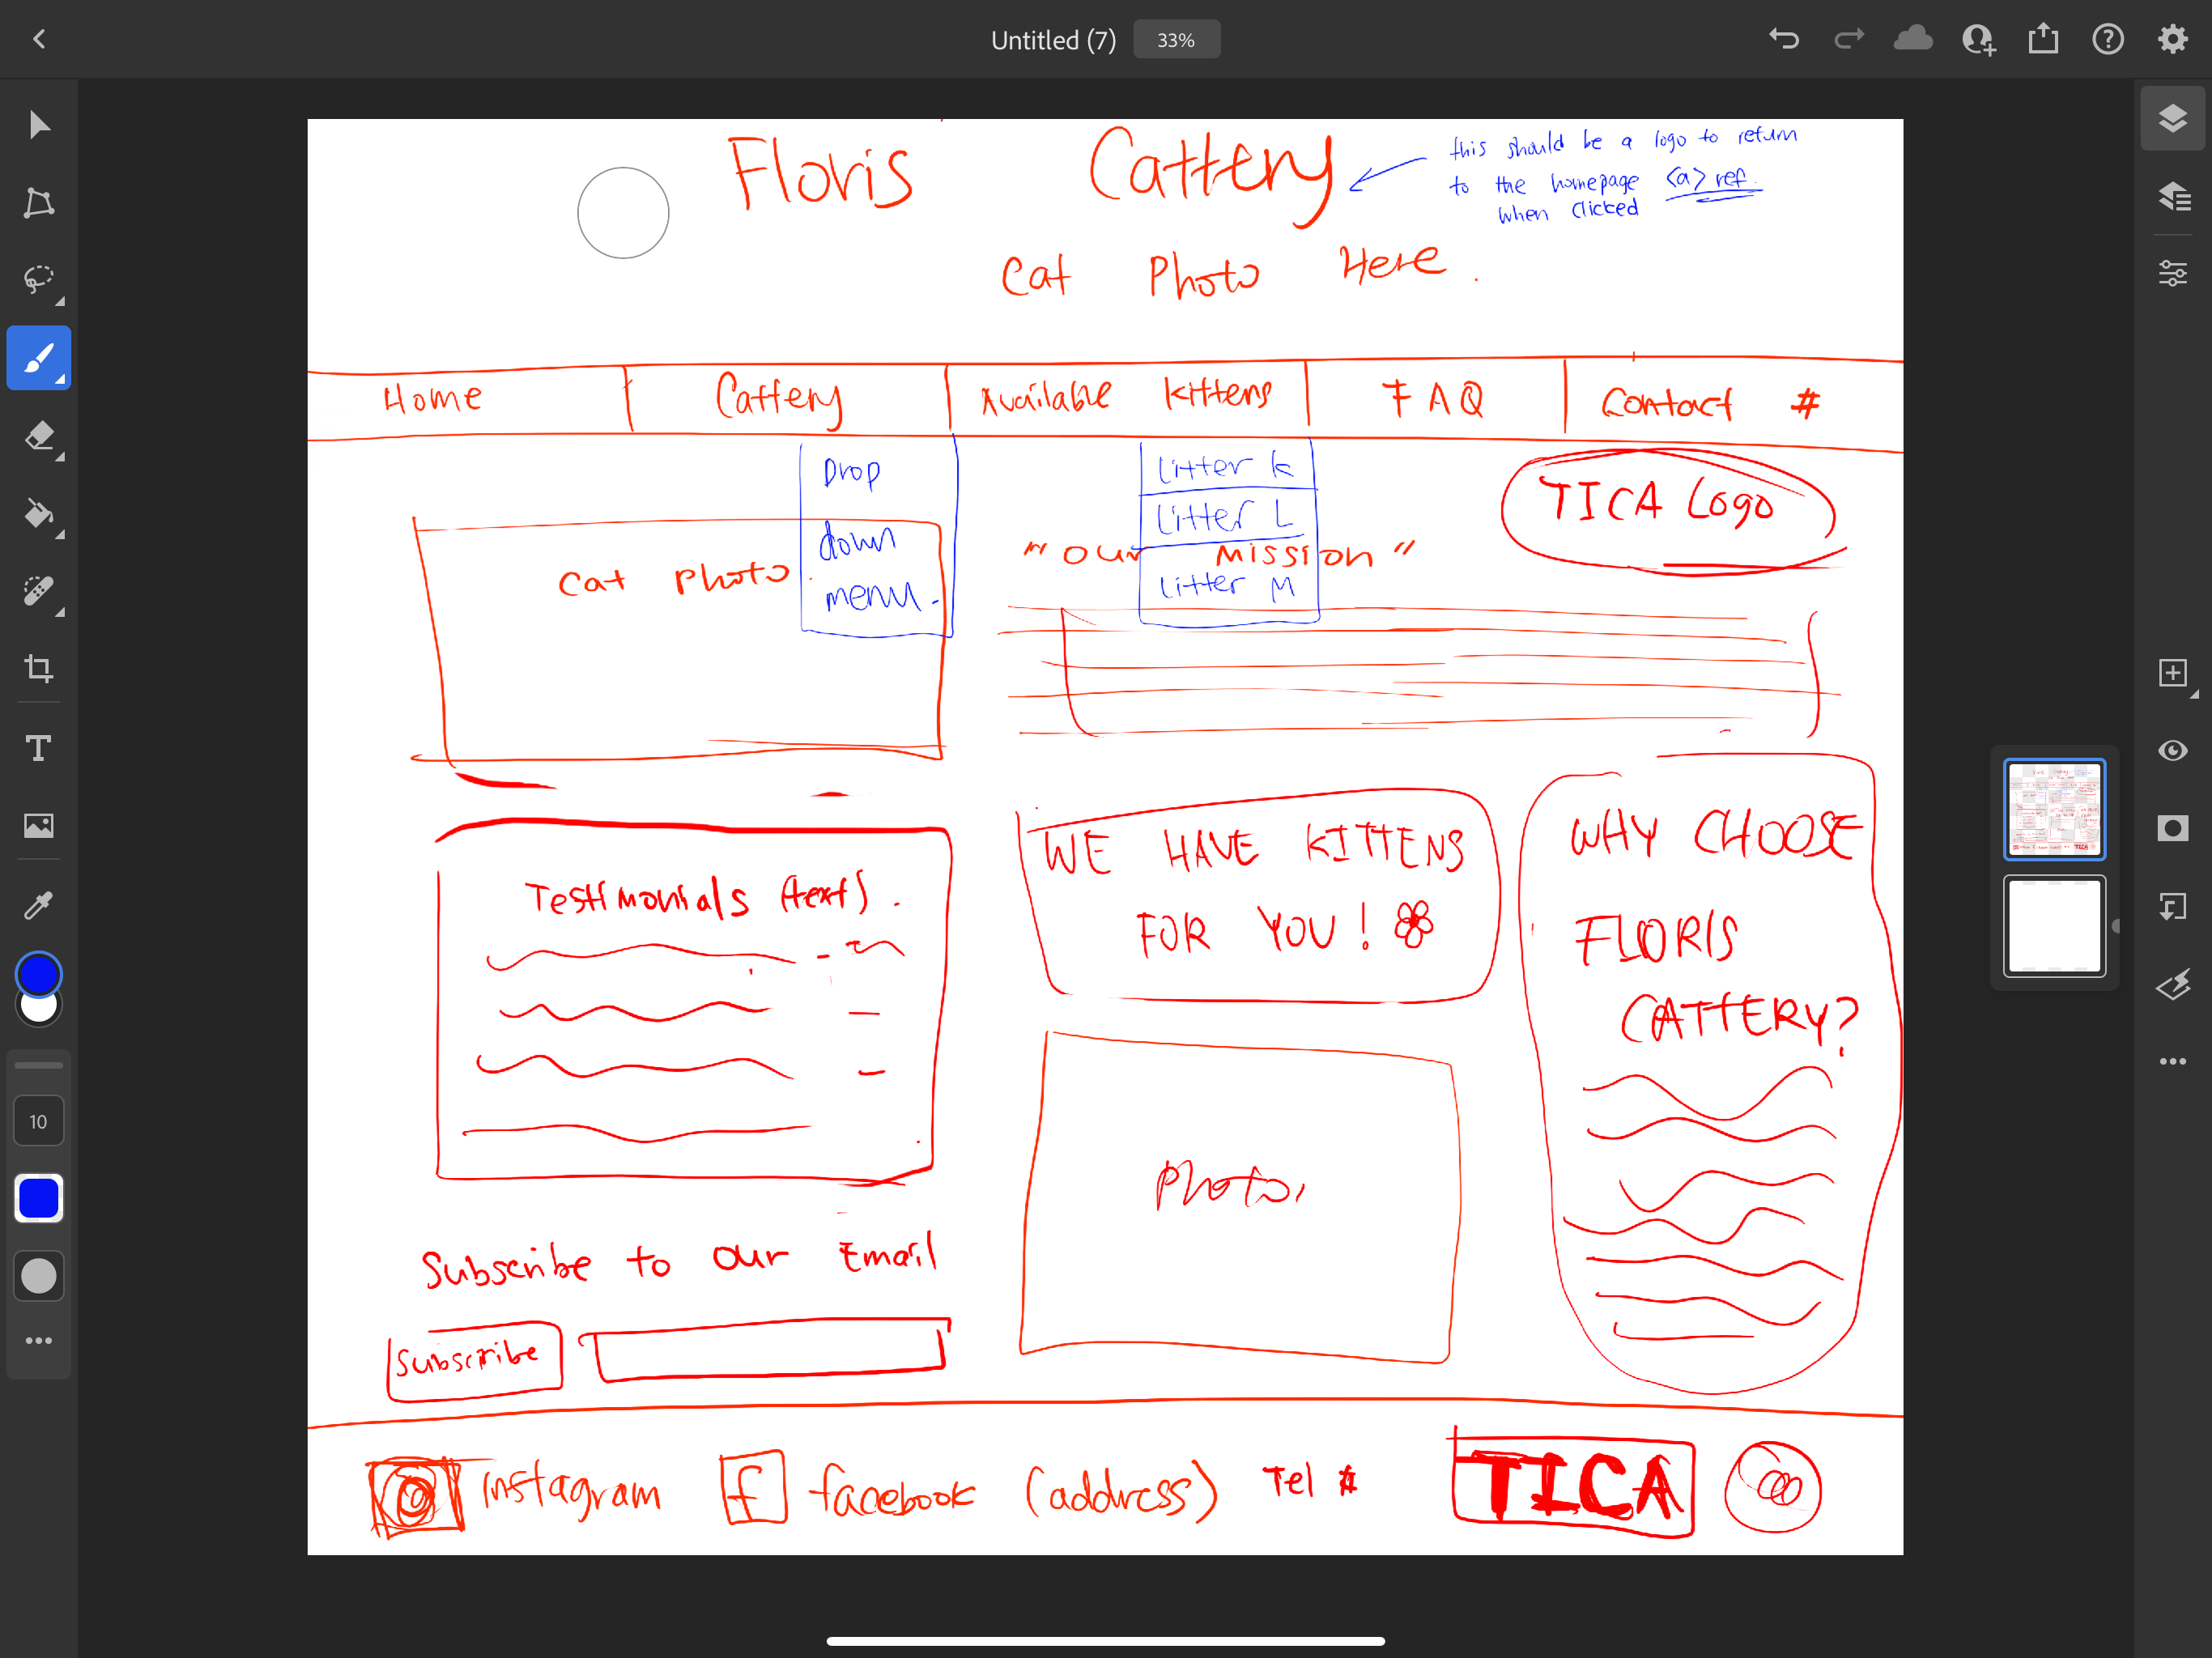 Untitled (7) 33%
Floris Cattery
this should be a logo to return
to the homepage <a> ref.
when clicked
Cat Photo Here.
Home Cattery Available kittens FAQ Contact #
Drop
down
menu.
Litter K
Litter L
Litter M
TICA Logo
Cat photo.
"Our Mission"
Testimonials (text).
WE HAVE KITTENS
FOR YOU!
WHY CHOOSE
FLORIS
CATTERY?
Photo.
Subscribe to our Email
Subscribe
Instagram f facebook (address) Tel # TICA
T
10